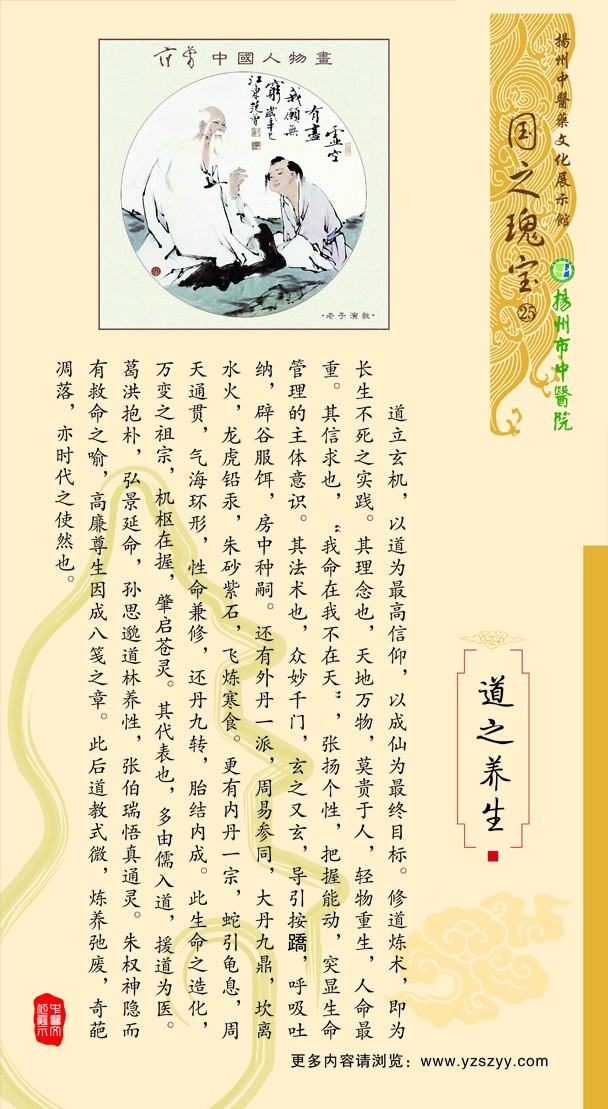 揚州中醫藥文化展示館
国之瑰宝
25
揚州市中醫院
范曾 中國人物畫
靈空
有盡
我願無
窮歲辛巳
江東范曾
·老子演教·
道之养生
道立玄机，以道为最高信仰，以成仙为最终目标。修道炼术，即为
长生不死之实践。其理念也，天地万物，莫贵于人，轻物重生，人命最
重。其信求也，“我命在我不在天”，张扬个性，把握能动，突显生命
管理的主体意识。其法术也，众妙千门，玄之又玄，导引按蹻，呼吸吐
纳，辟谷服饵，房中种嗣。还有外丹一派，周易参同，大丹九鼎，坎离
水火，龙虎铅汞，朱砂紫石，飞炼寒食。更有内丹一宗，蛇引龟息，周
天通贯，气海环形，性命兼修，还丹九转，胎结内成。此生命之造化，
万变之祖宗，机枢在握，肇启苍灵。其代表也，多由儒入道，援道为医。
葛洪抱朴，弘景延命，孙思邈道林养性，张伯瑞悟真通灵。朱权神隐而
有救命之喻，高廉尊生因成八笺之章。此后道教式微，炼养弛废，奇葩
凋落，亦时代之使然也。
更多内容请浏览：www.yzszyy.com